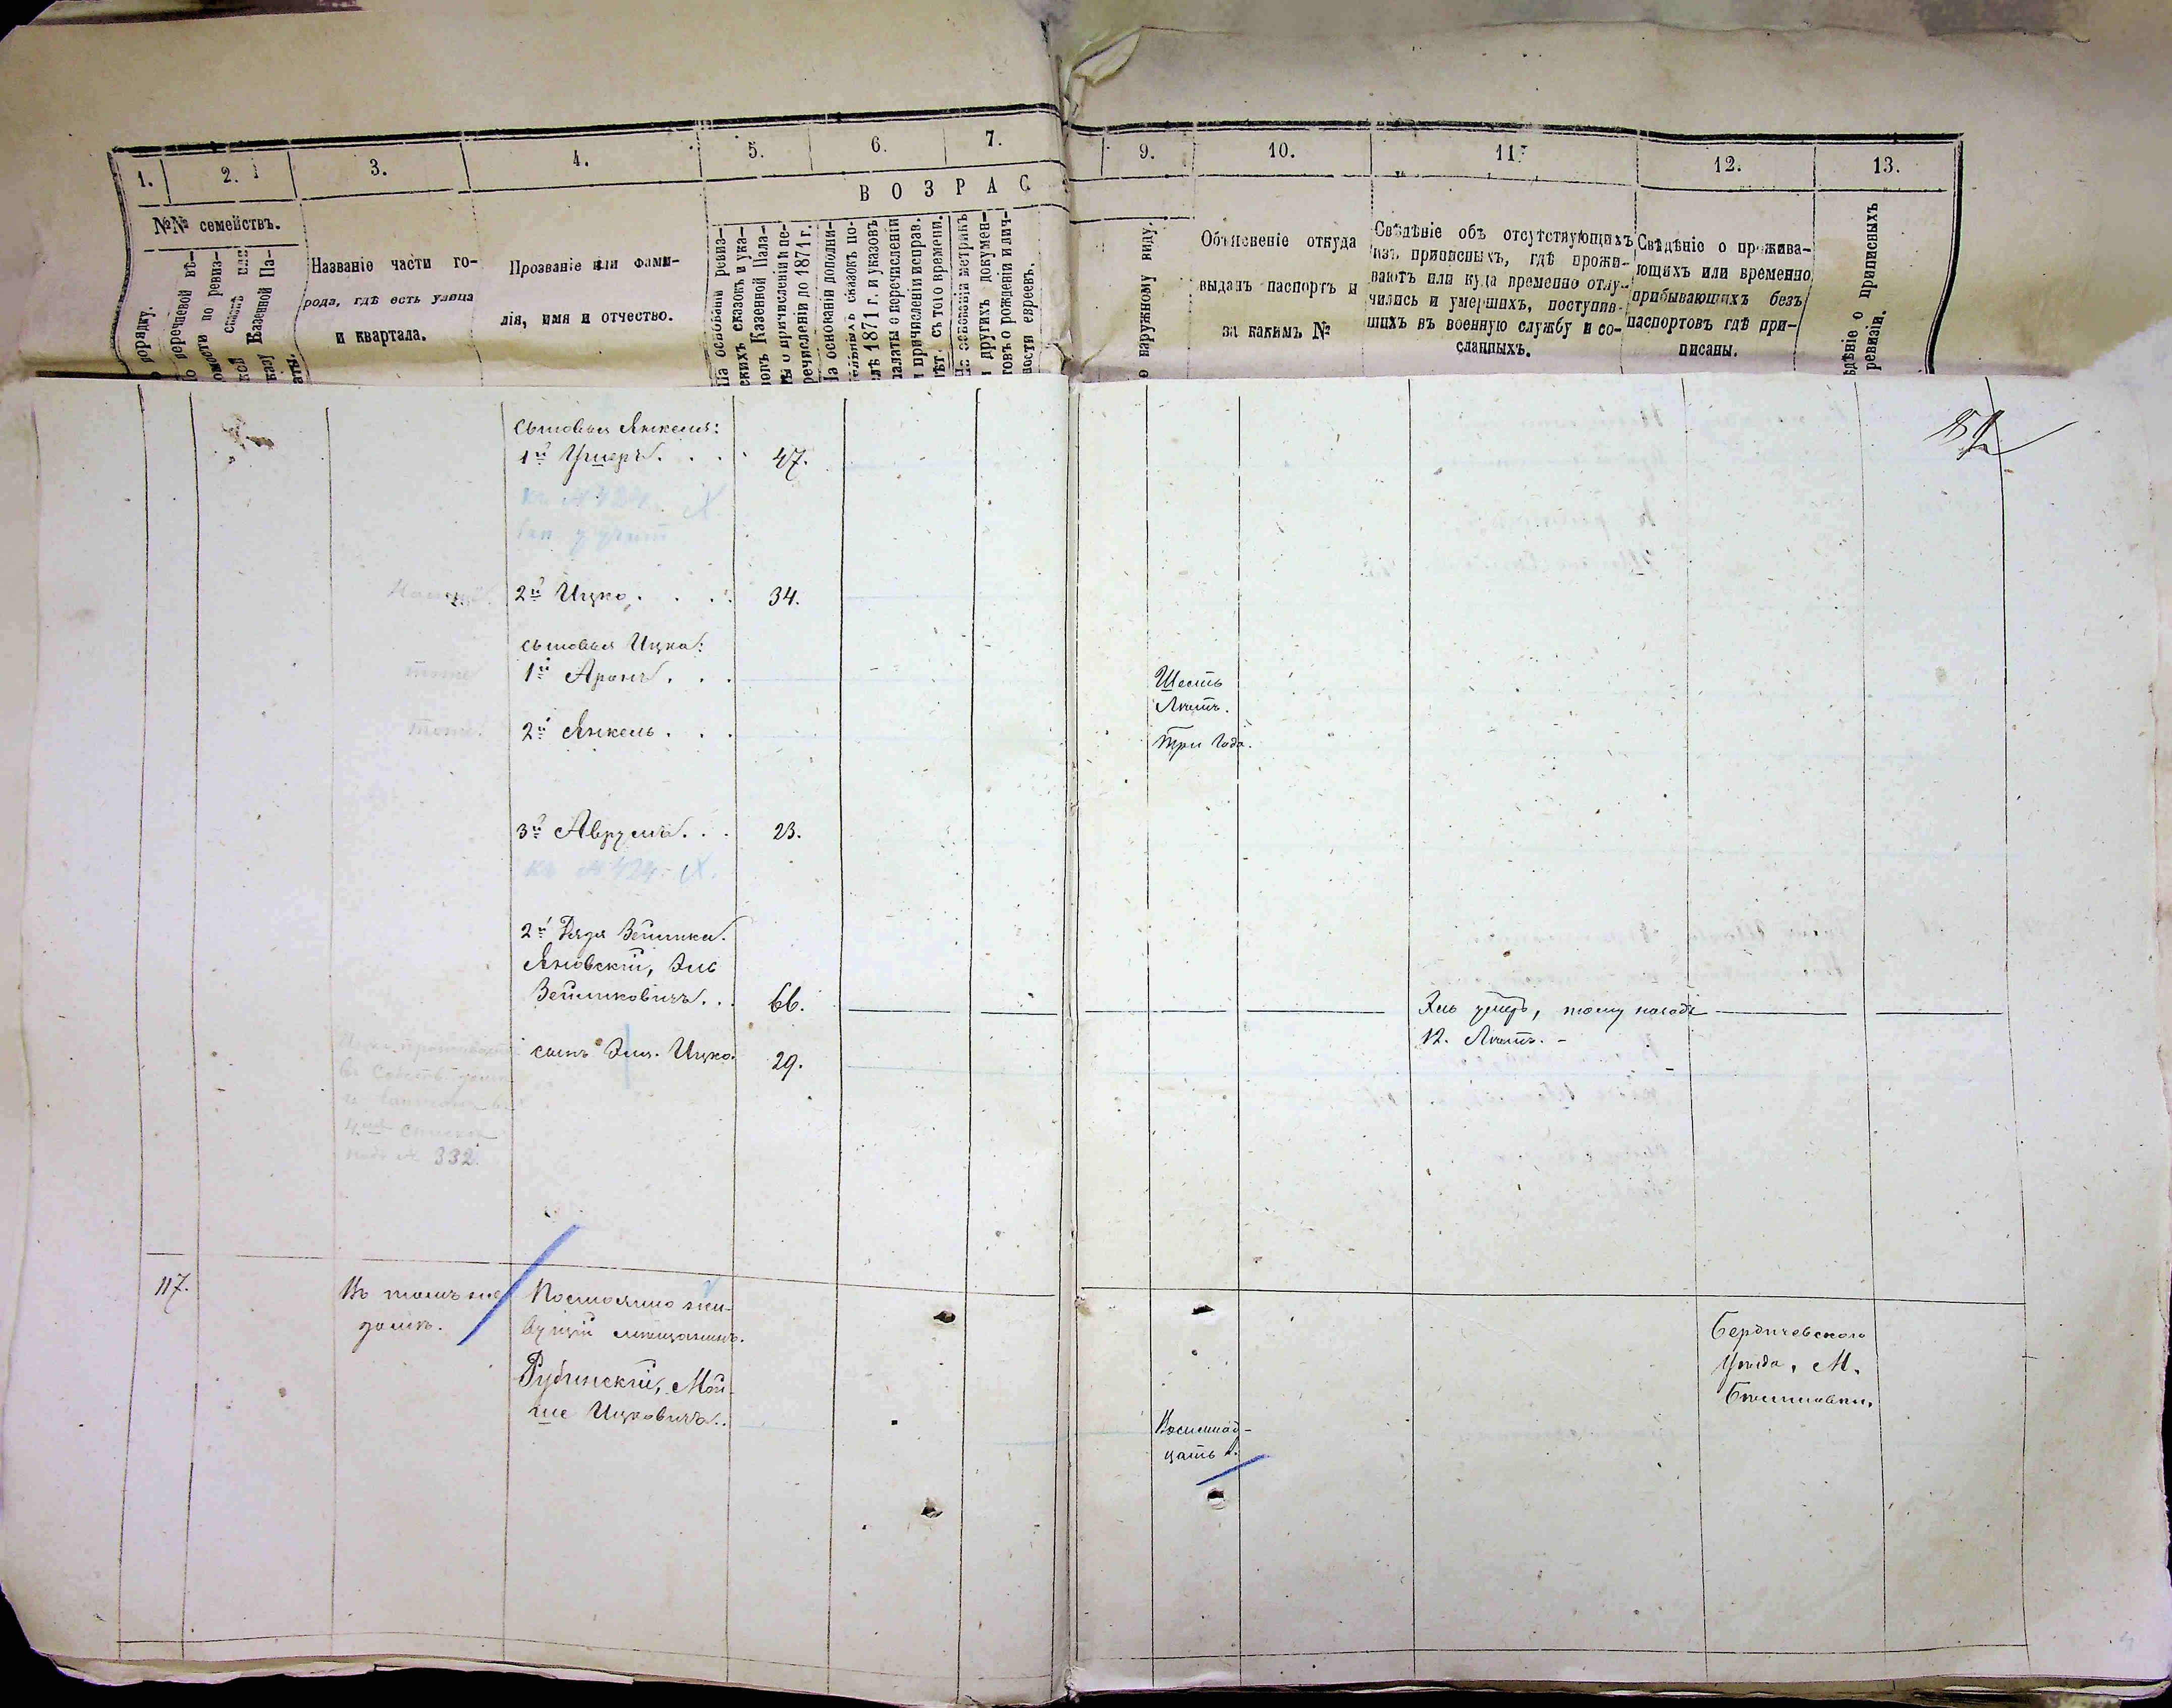 1.
2.
3.
4.
5.
6.
7.
9.
10.
11.
12.
13.
В О З Р А С
№№ семействъ.
порядку.
о перечневой вѣ-
омости по ревиз-
ской сказкѣ или
казу Казенной Па-
аты.
Названіе части го-
рода, гдѣ есть улица
и квартала.
Прозваніе или фами-
лія, имя и отчество.
На основаніи ревиз-
скихъ сказокъ и ука-
зовъ Казенной Пала-
ты о причисленіи и пе-
речисленіи до 1871 г.
На основаніи дополни-
тельныхъ сказокъ по-
слѣ 1871 г. и указовъ
палаты о перечисленіи
и причисленіи исправ.
лѣтъ съ того времени.
На основаніи метрикъ
и другихъ докумен-
товъ о рожденіи и лич-
ности евреевъ.
о наружному виду.
Объясненіе откуда
выданъ паспортъ и
за какимъ №
Свѣдѣніе объ отсутствующихъ
изъ приписныхъ, гдѣ прожи-
ваютъ или куда временно отлу-
чились и умершихъ, поступив-
шихъ въ военную службу и со-
сланныхъ.
Свѣдѣніе о прожива-
ющихъ или временно
прибывающихъ безъ
паспортовъ гдѣ при-
писаны.
дѣніе о приписныхъ
ревизіи.
сыновья Янкеля:
1й Ушеръ. . . 47.
къ № 424. X.
2й Ицко. . . . 34.
сыновья Ицка:
тоже 1й Аронъ. . . Шесть
Лѣтъ.
тоже. 2й Янкель. . . Три года.
3й Аврумъ. . . 23.
къ № 424. X.
2й Дядя Зейлика.
Яновскій, Эль
Зейликовичъ. . . 66. Эль умеръ, тому назадъ
12. Лѣтъ. -
сынъ Эля. Ицко. 29.
Ицко проживаетъ
въ Собств. домѣ
и записанъ въ
4мъ спискѣ
подъ № 332.
117. Въ томъ же
домѣ.
Постоянно жи-
вущій мѣщанинъ.
Рубинскій, Мой-
ше Ицковичъ. .
Восемнад-
цать л.
Бердичевскаго
Уѣзда, М.